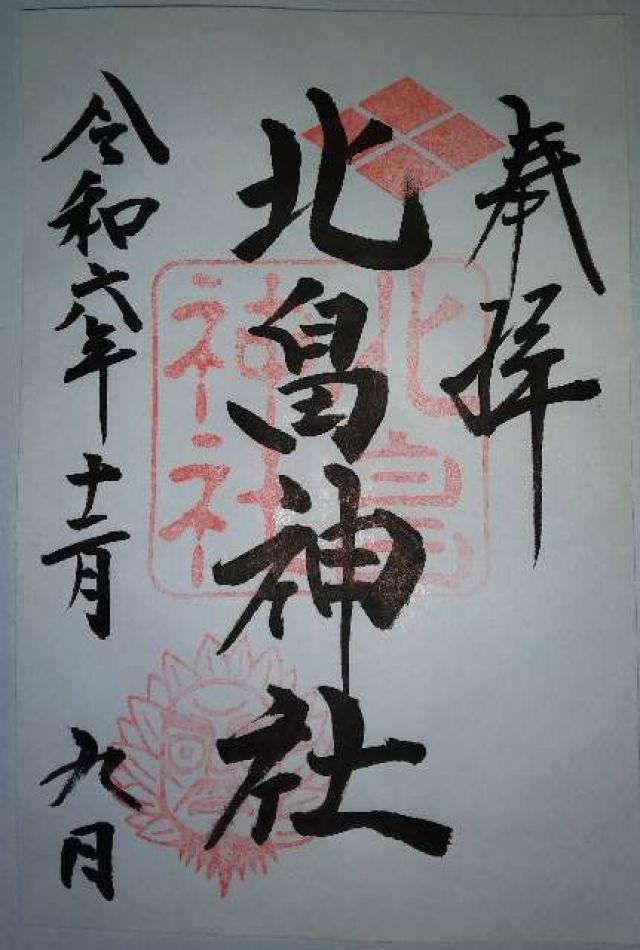 奉拝
北畠神社
北畠神社
令和六年十二月九月